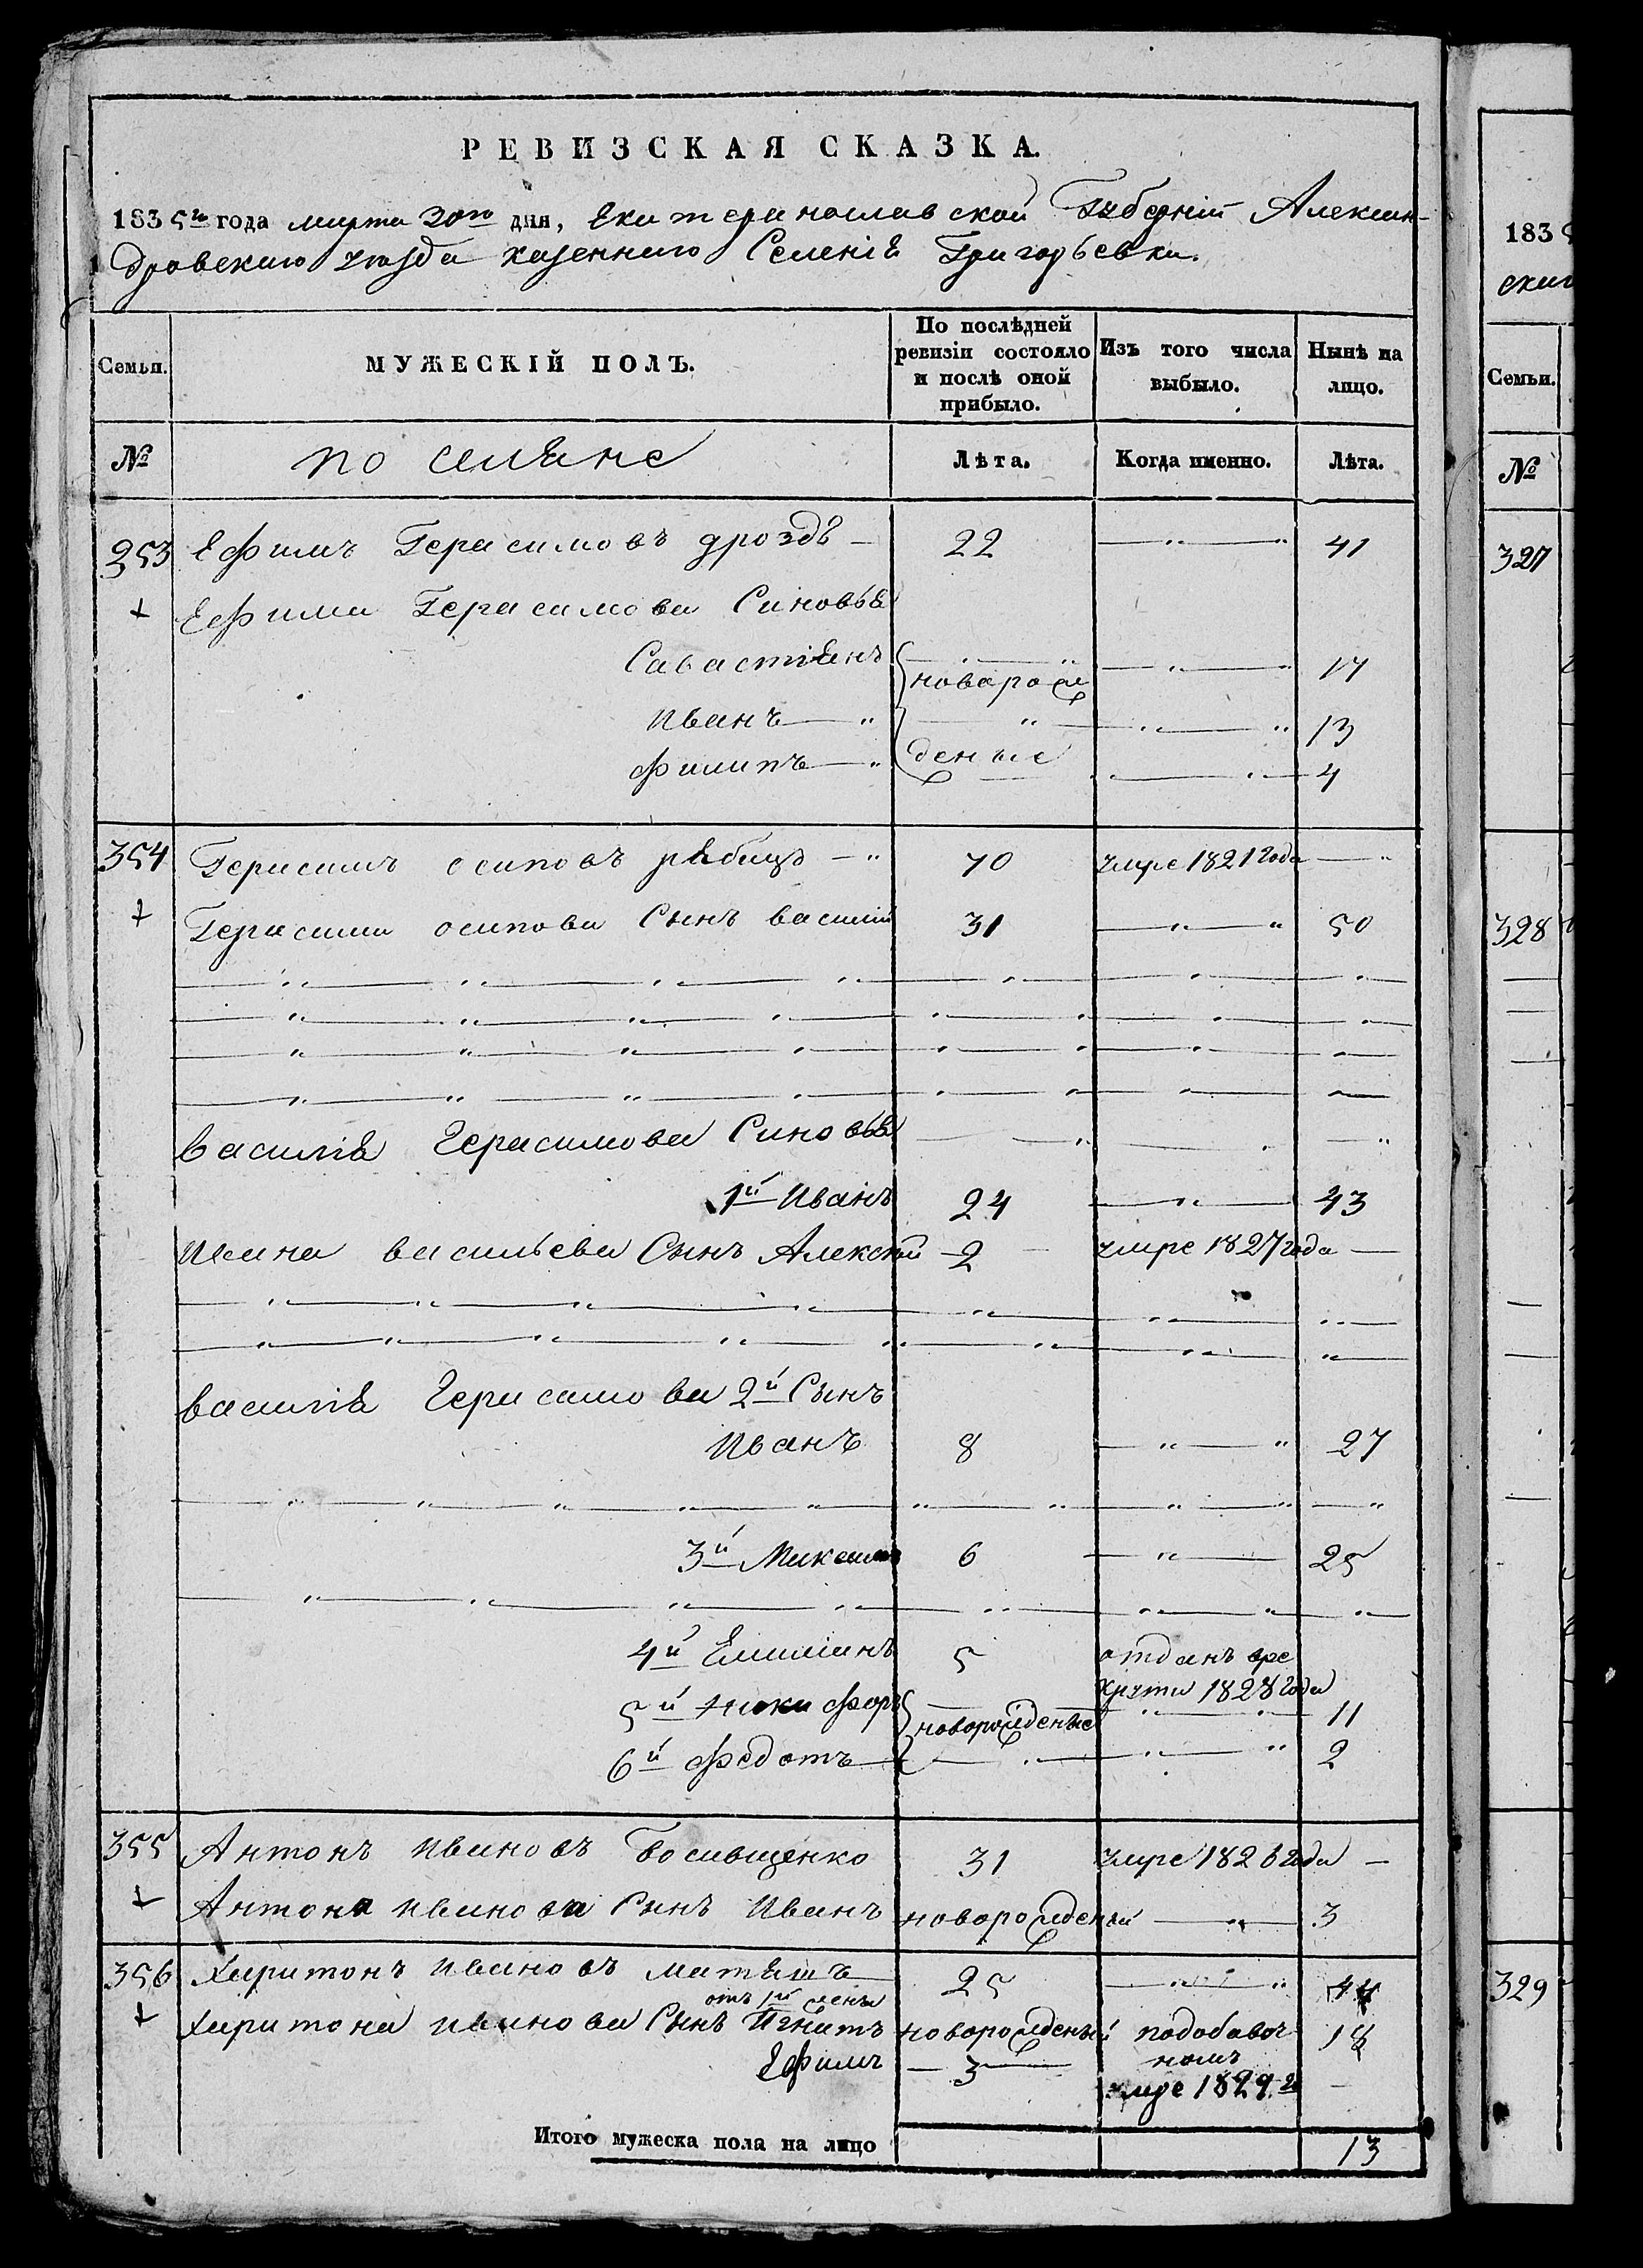 РЕВИЗСКАЯ СКАЗКА.
1835го года марта 30го дня, Екатеринославской Губерніи Алексан-
дровскаго уѣзда казеннаго Селенія Григорьевки.
Семьи. МУЖЕСКІЙ ПОЛЪ. По послѣдней ревизіи состояло и послѣ оной прибыло. Изъ того числа выбыло. Нынѣ на лицо.
№ поселяне Лѣта. Когда именно. Лѣта.
353 Ефимъ Герасимовъ дроздъ 22 41
Ефима Герасимова Сыновья
Савастіянъ новарож 17
Иванъ 13
филипъ деные 4
354 Герасимъ осиповъ рябецъ 70 умре 1821 года
Герасима осипова Сынъ василій 31 50
василія Герасимова Сыновья
1й Иванъ 24 43
Ивана васильева Сынъ Алексѣй 2 умре 1827 года
василія Герасимова 2й Сынъ
Иванъ 8 27
3й Максимъ 6 25
4й Емилиянъ 5 отданъ вре
круты 1828 года
5й Никифоръ новорожденые 11
6й федотъ 2
355 Антонъ Ивановъ 31 умре 1826 года
Антона Иванова Сынъ Иванъ новорожденый 3
356 Харитонъ Ивановъ матяшъ 25 44
отъ 1й жены
Харитона Иванова Сынъ Игнатъ новорожденый подобавоч 18
номъ
Ефимъ 3 умре 1829 го
Итого мужеска пола на лицо 13
1835
скаг
Семьи.
№
327
328
329